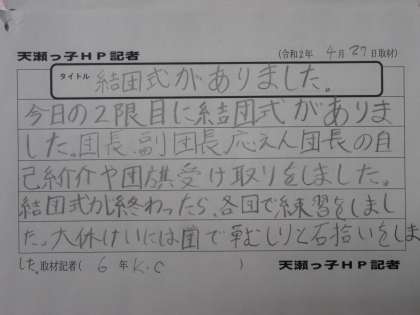 天瀬っ子HP記者
(令和2年 4月27日取材)
タイトル 結団式がありました。
今日の2限目に結団式がありま
した。団長、副団長、応えん団長の自
己紹介や団旗受け取りをしました。
結団式が終わったら、各団で練習をしまし
た。大休けいには団で草むしりと石拾いをしま
した。取材記者( 6年 K.C )
天瀬っ子HP記者